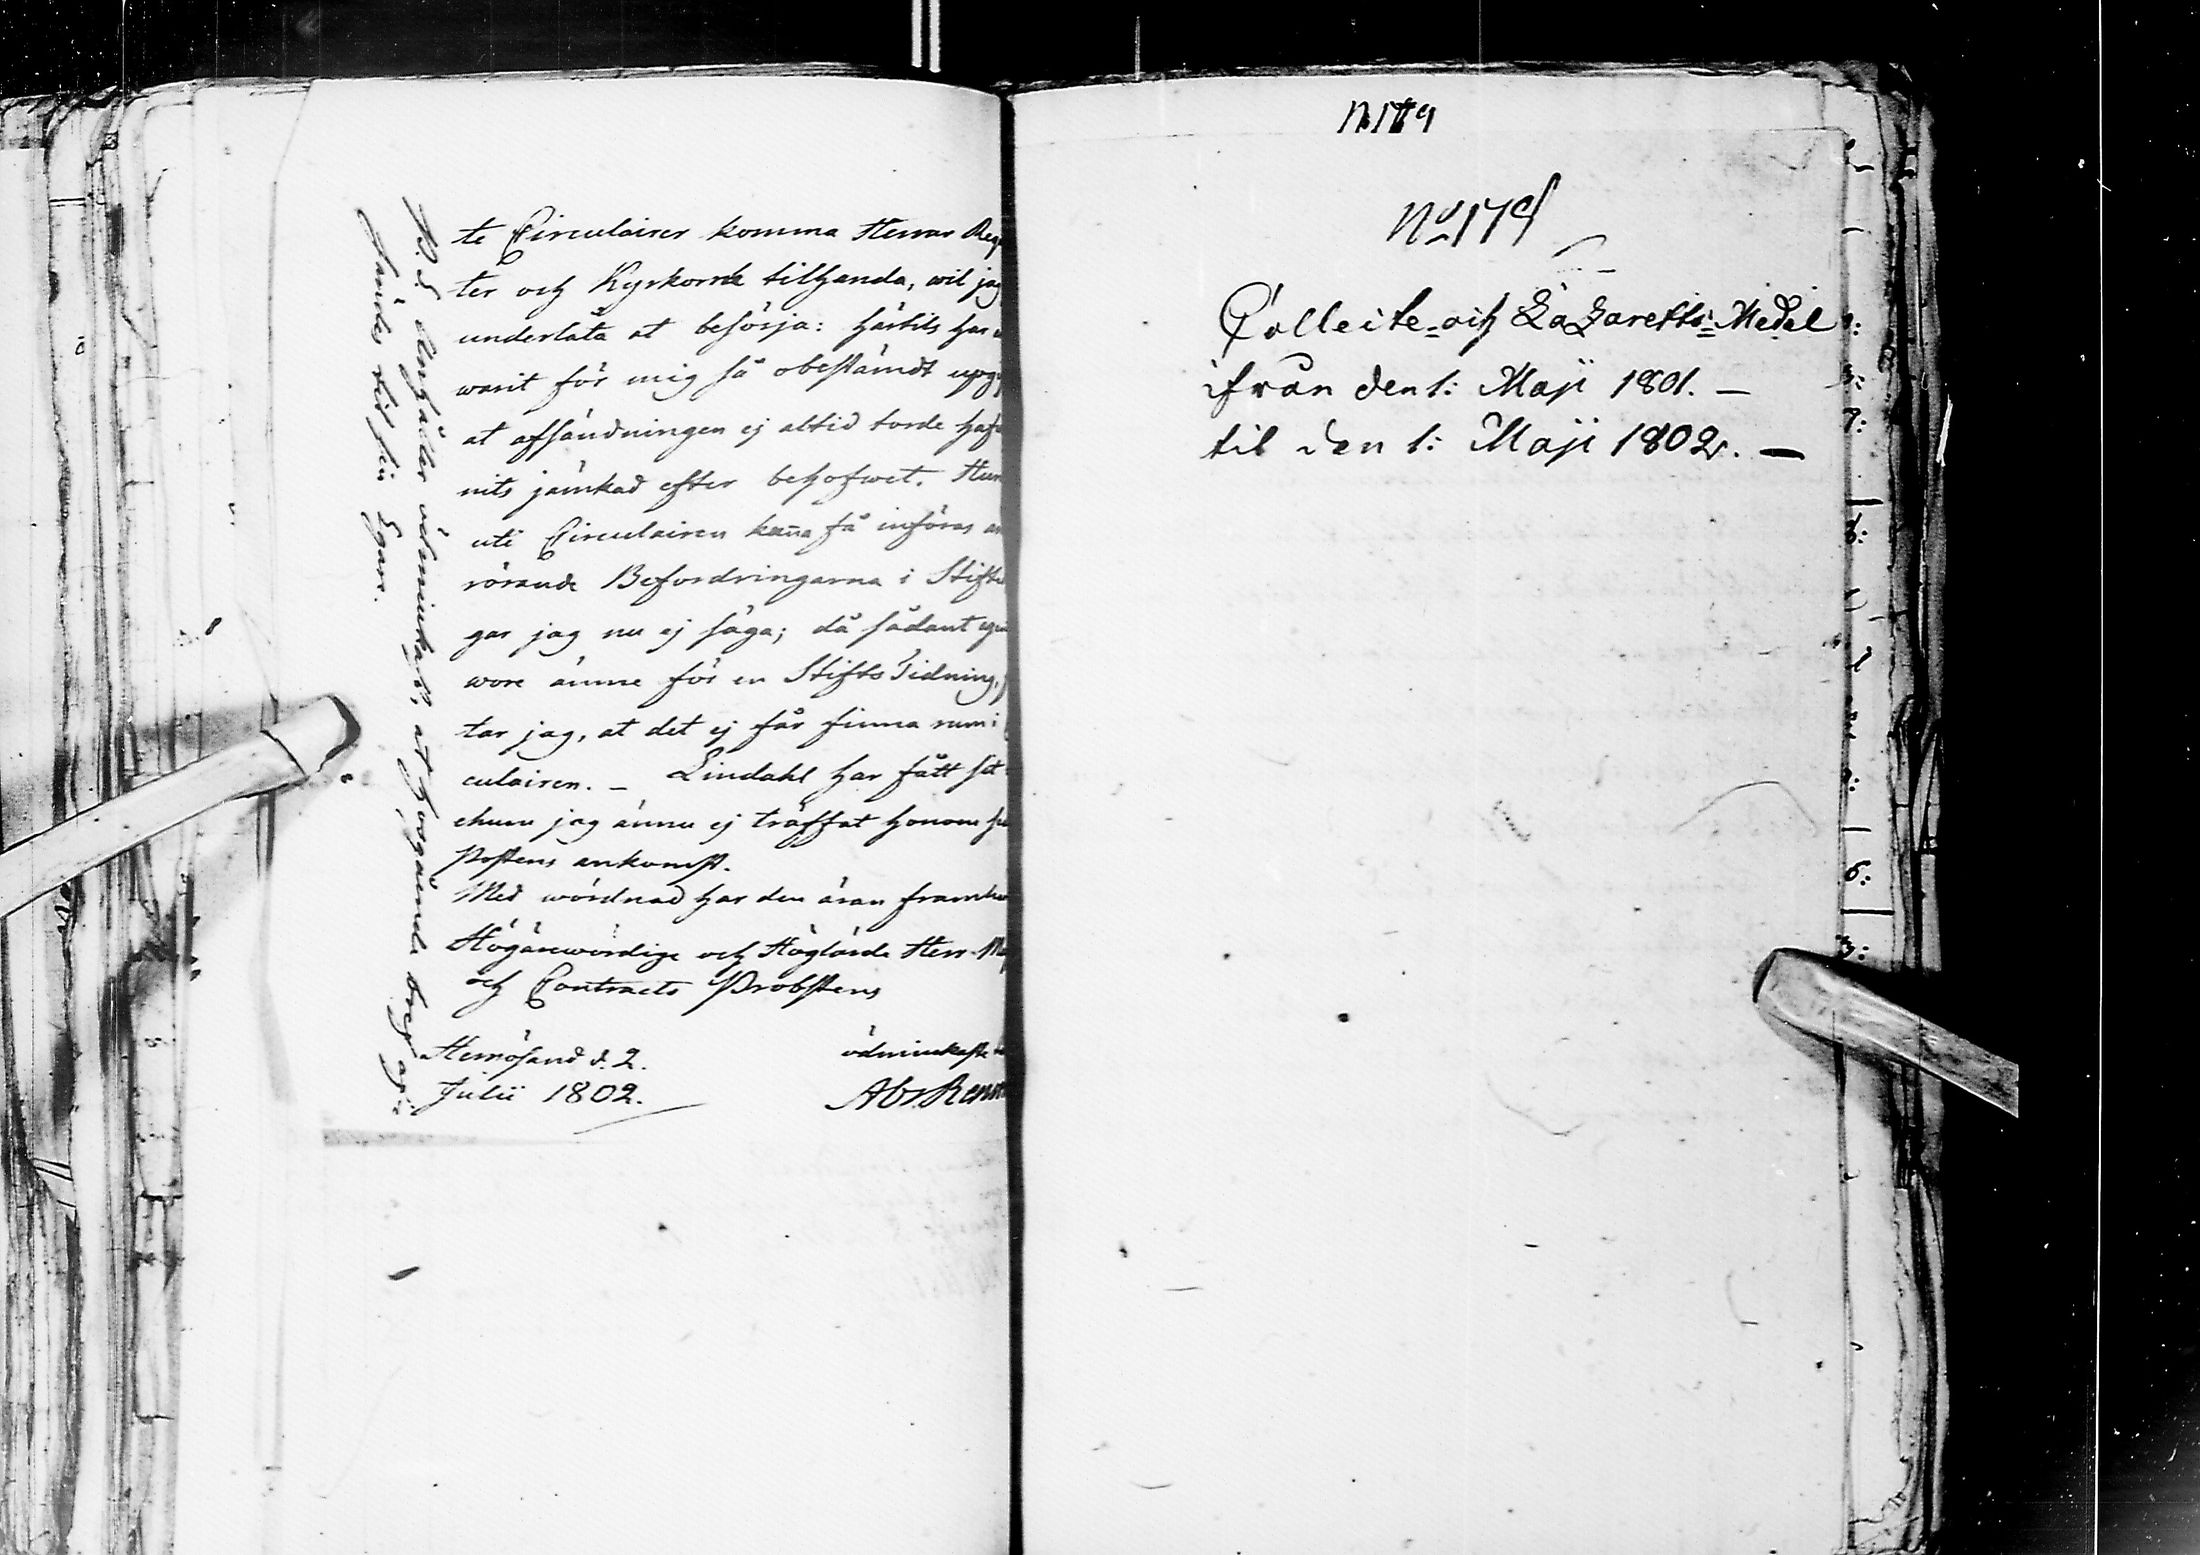 te Circulairer komma Herrar
ter och Kyrkorne tilhanda, wil jag
underlåta at besörja: härtils har
warit för mig så obestämdt
at afsändningen ej altid torde
nits jämkad efter behofwet.
uti Circulairen kuña få införas
rörande Befordringarna i
gar jag nu ej säga; då sådant
wore ämne för en Stifts Tidning,
tar jag, at det ej får finna rum i
culairen. – Lindahl har fått
ehuru jag ännu ej träffat honom
Postens ankomst.
Med wördnad har den äran
Högärewördige och Höglärde Herr
och Contracts Probstens
Hernösand d. 2.
Julii 1802.
ödmiukaste
Abr.
P. S. Anhåller ödmiukast, at fogande bref
sändes til sin Egare.
N:179
No 179
Collecte- och Lazaretts-Medel
ifrån den 1: Maji 1801. –
til den 1: Maji 1802. –